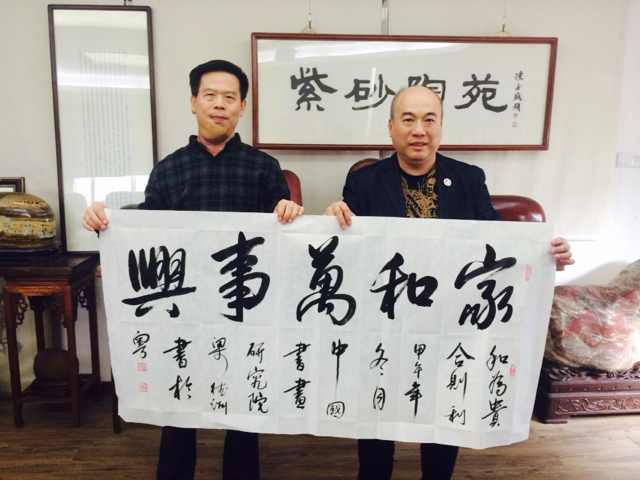 紫砂陶苑
家和萬事興
和為貴
合則利
甲午年
冬月
中國
書畫
研究院
書於
粵